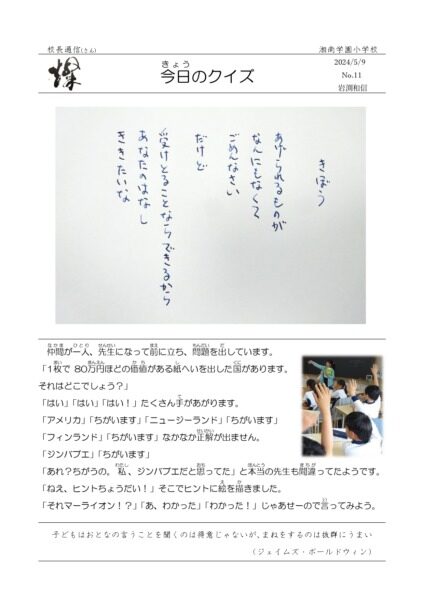 校長通信(さん)
湘南学園小学校
燦
今日のクイズ
2024/5/9
No.11
岩渕和信
きぼう
あげられるものが
なんにもなくて
ごめんなさい
だけど
受けとることならできるから
あなたのはなし
ききたいな
仲間が一人、先生になって前に立ち、問題を出しています。
「1枚で 80万円ほどの価値がある紙へいを出した国があります。
それはどこでしょう？」
「はい」「はい」「はい！」たくさん手があがります。
「アメリカ」「ちがいます」「ニュージーランド」「ちがいます」
「フィンランド」「ちがいます」なかなか正解が出ません。
「ジンバブエ」「ちがいます」
「あれ？ちがうの。私、ジンバブエだと思ってた」と本当の先生も間違ってたようです。
「ねえ、ヒントちょうだい！」そこでヒントに絵を描きました。
「それマーライオン！？」「あ、わかった」「わかった！」じゃあせーので言ってみよう。
子どもはおとなの言うことを聞くのは得意じゃないが、まねをするのは抜群にうまい
（ジェイムズ・ボールドウィン）